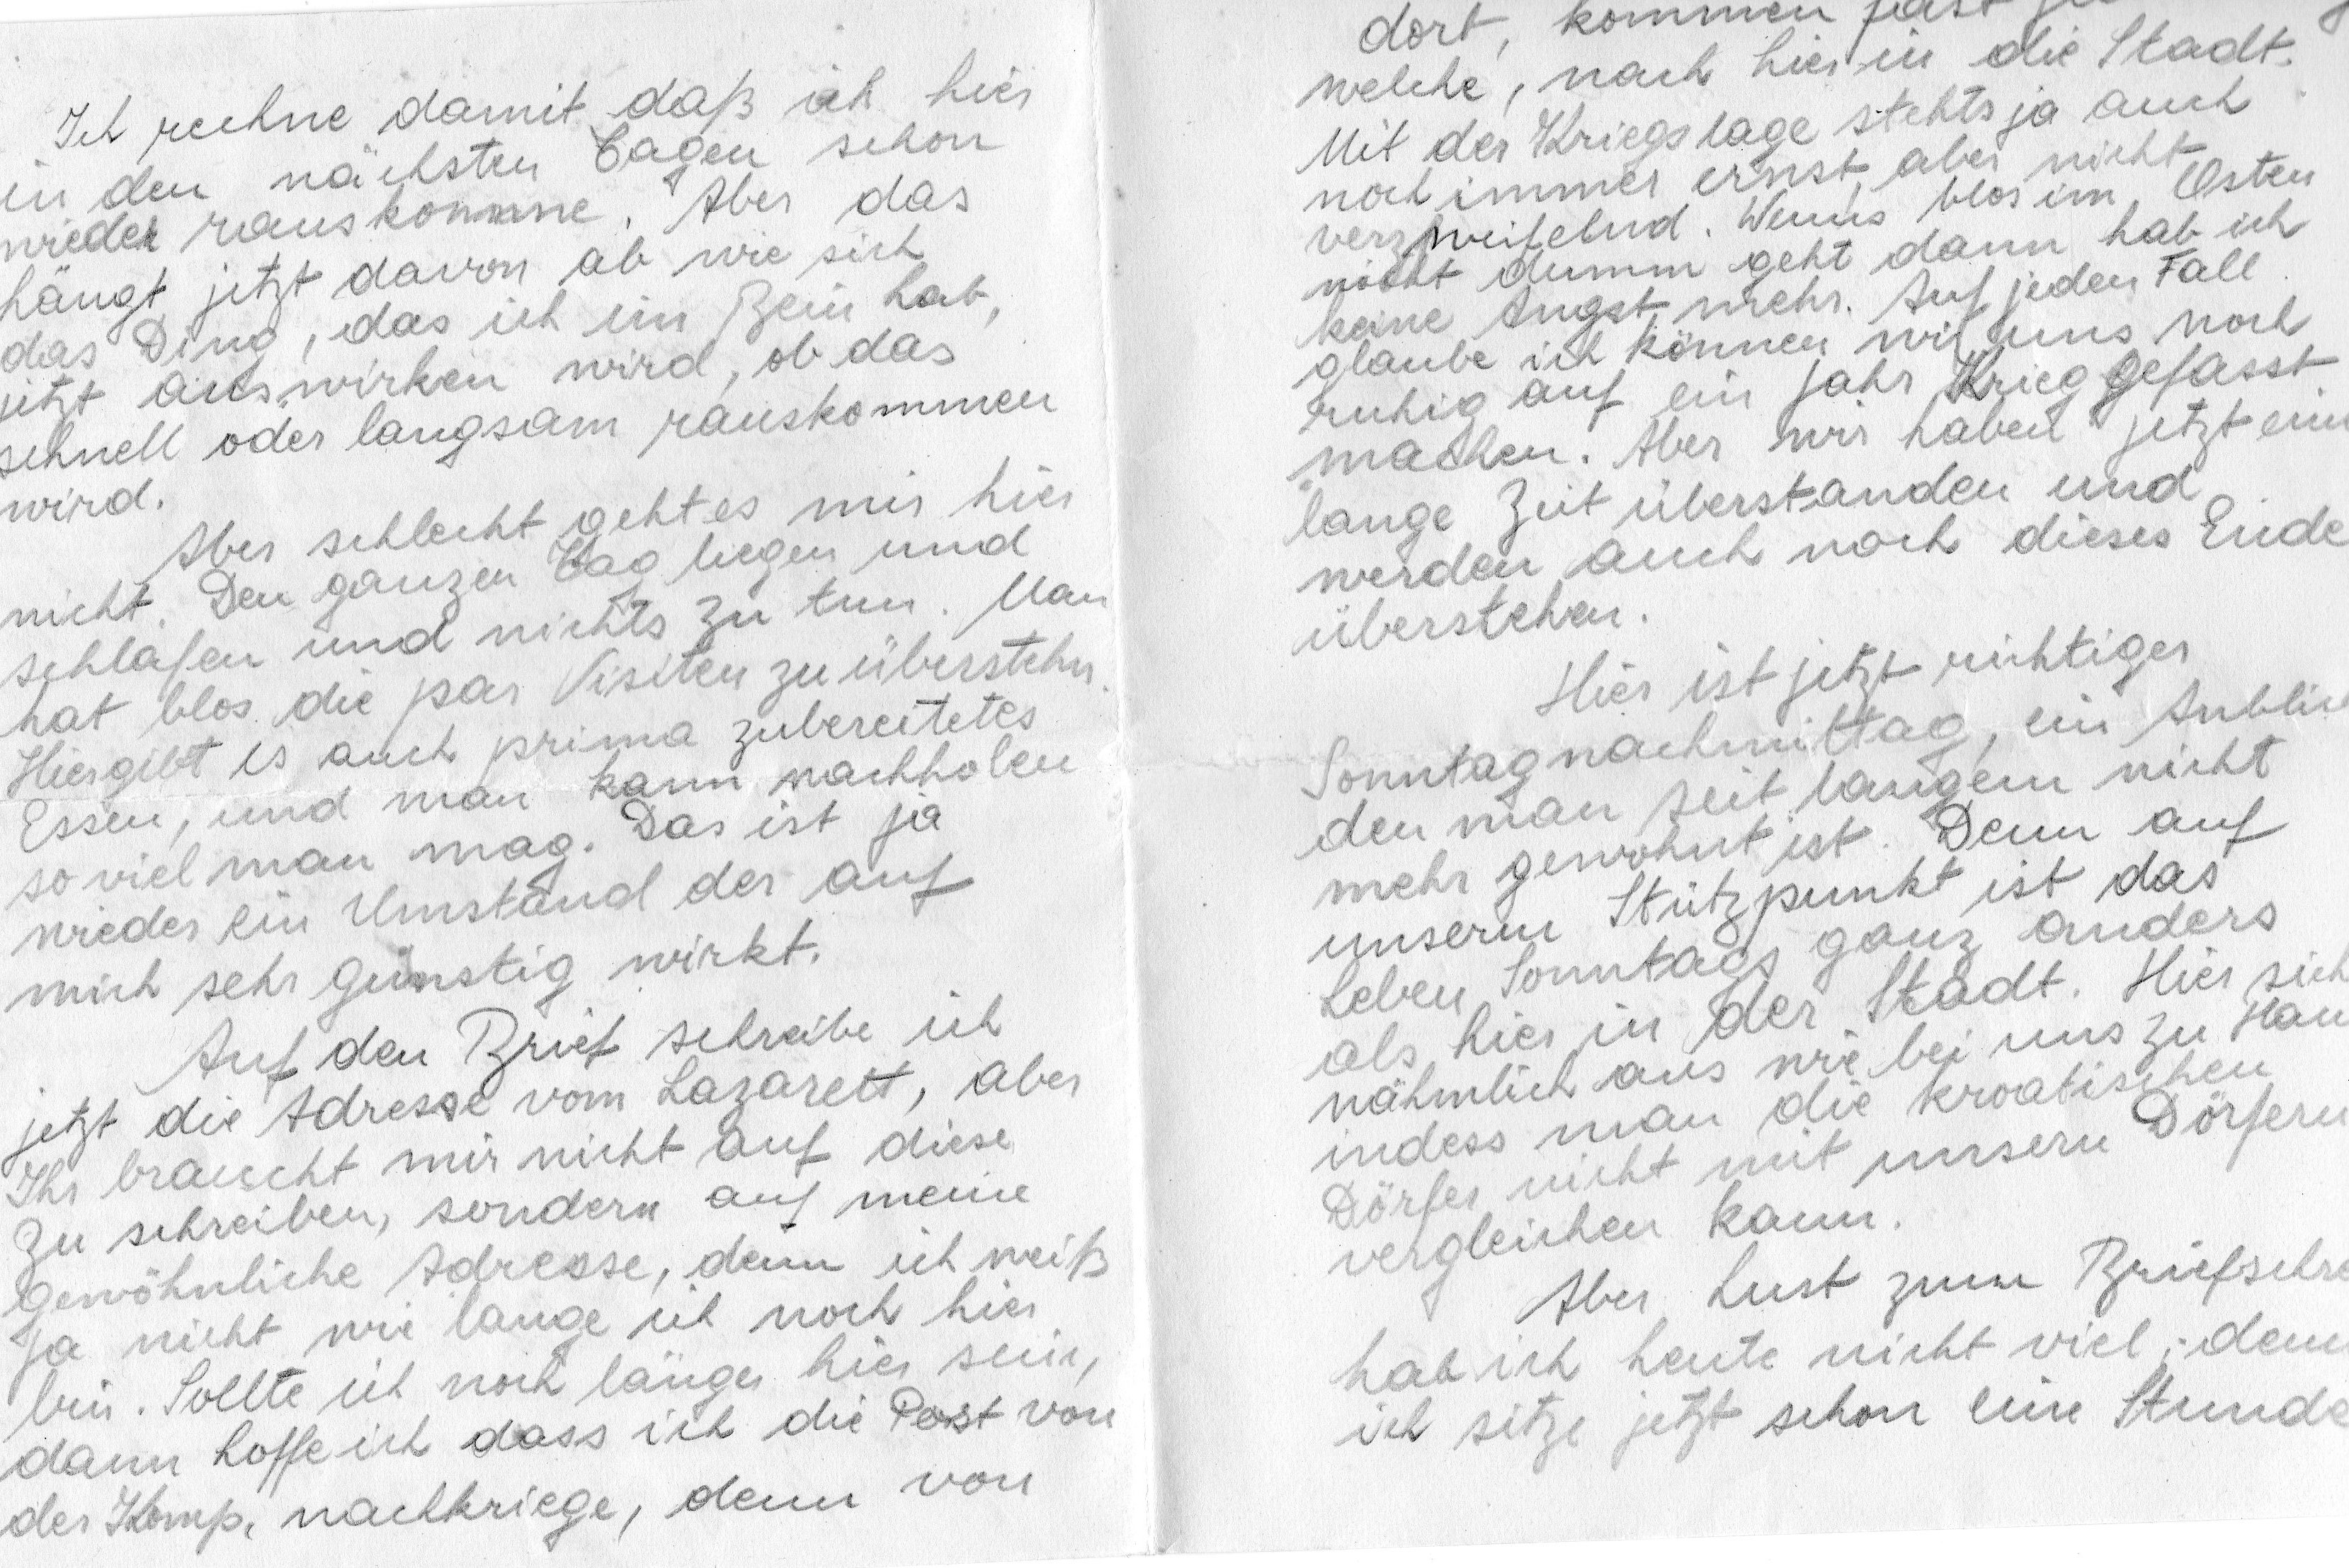 Ich rechne damit daß ich hier
in den nächsten Tagen schon
wieder rauskomme. Aber das
hängt jetzt davon ab wie sich
das Ding, das ich im Bein hab,
jetzt auswirken wird, ob das
schnell oder langsam rauskommen
wird.
Aber schlecht geht es mir hier
nicht. Den ganzen Tag liegen und
schlafen und nichts zu tun. Man
hat blos die par Visiten zu überstehn.
Hier gibt es auch prima zubereitetes
Essen, und man kann nachholen
so viel man mag. Das ist ja
wieder ein Umstand der auf
mich sehr günstig wirkt.
Auf den Brief schreibe ich
jetzt die Adresse vom Lazarett, aber
Ihr braucht mir nicht auf diese
zu schreiben, sondern auf meine
gewöhnliche Adresse, denn ich weiß
ja nicht wie lange ich noch hier
bin. Sollte ich noch länger hier sein,
dann hoffe ich dass ich die Post von
der Komp. nachkriege, denn von
dort, kommen fast
welche, nach hier in die Stadt.
Mit der Kriegslage stehts ja auch
noch immer ernst, aber nicht
verzweifelnd. Wenns blos im Osten
nicht dumm geht dann hab ich
keine Angst mehr. Auf jeden Fall
glaube ich können wir uns noch
ruhig auf ein Jahr Krieg gefasst
machen. Aber wir haben jetzt ein
lange Zeit überstanden und
werden auch noch dieses Ende
überstehen.
Hier ist jetzt richtiger
Sonntagnachmittag, ein Anblic
den man seit langem nicht
mehr gewohnt ist. Denn auf
unserm Stützpunkt ist das
Leben Sonntags ganz anders
als hier in der Stadt. Hier sieh
nähmlich aus wie bei uns zu Hau
indess man die kroatischen
Dörfer nicht mit unsern Dörfern
vergleichen kann.
Aber Lust zum Briefschre
hab ich heute nicht viel, denn
ich sitze jetzt schon eine Stunde